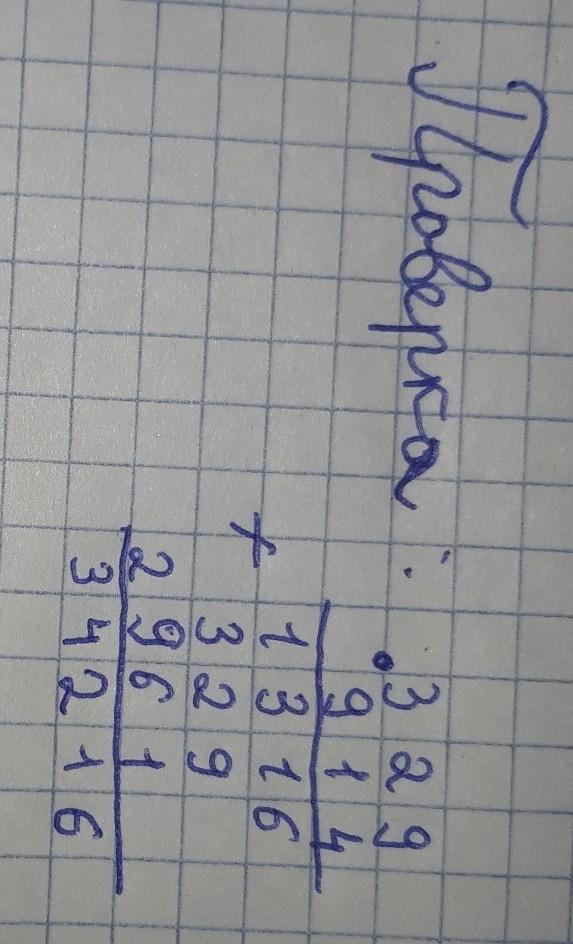 Проверка: • 329
914
1316
+ 329
2961
34216